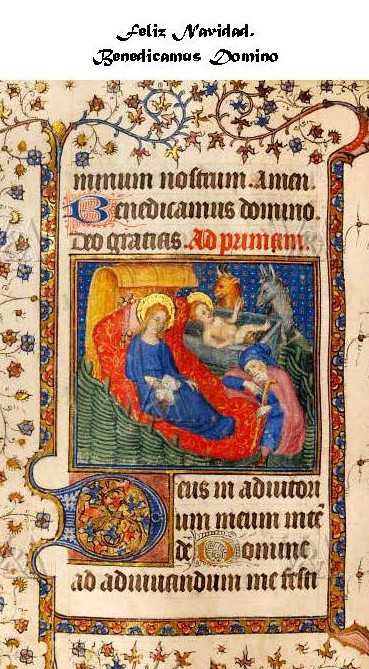 Feliz Navidad.
Benedicamus Domino
minum nostrum. Amen.
Benedicamus domino.
Deo gratias. Ad primam.
Deus in adiutori
um meum inte
de Domine
ad adiuuandum me festi